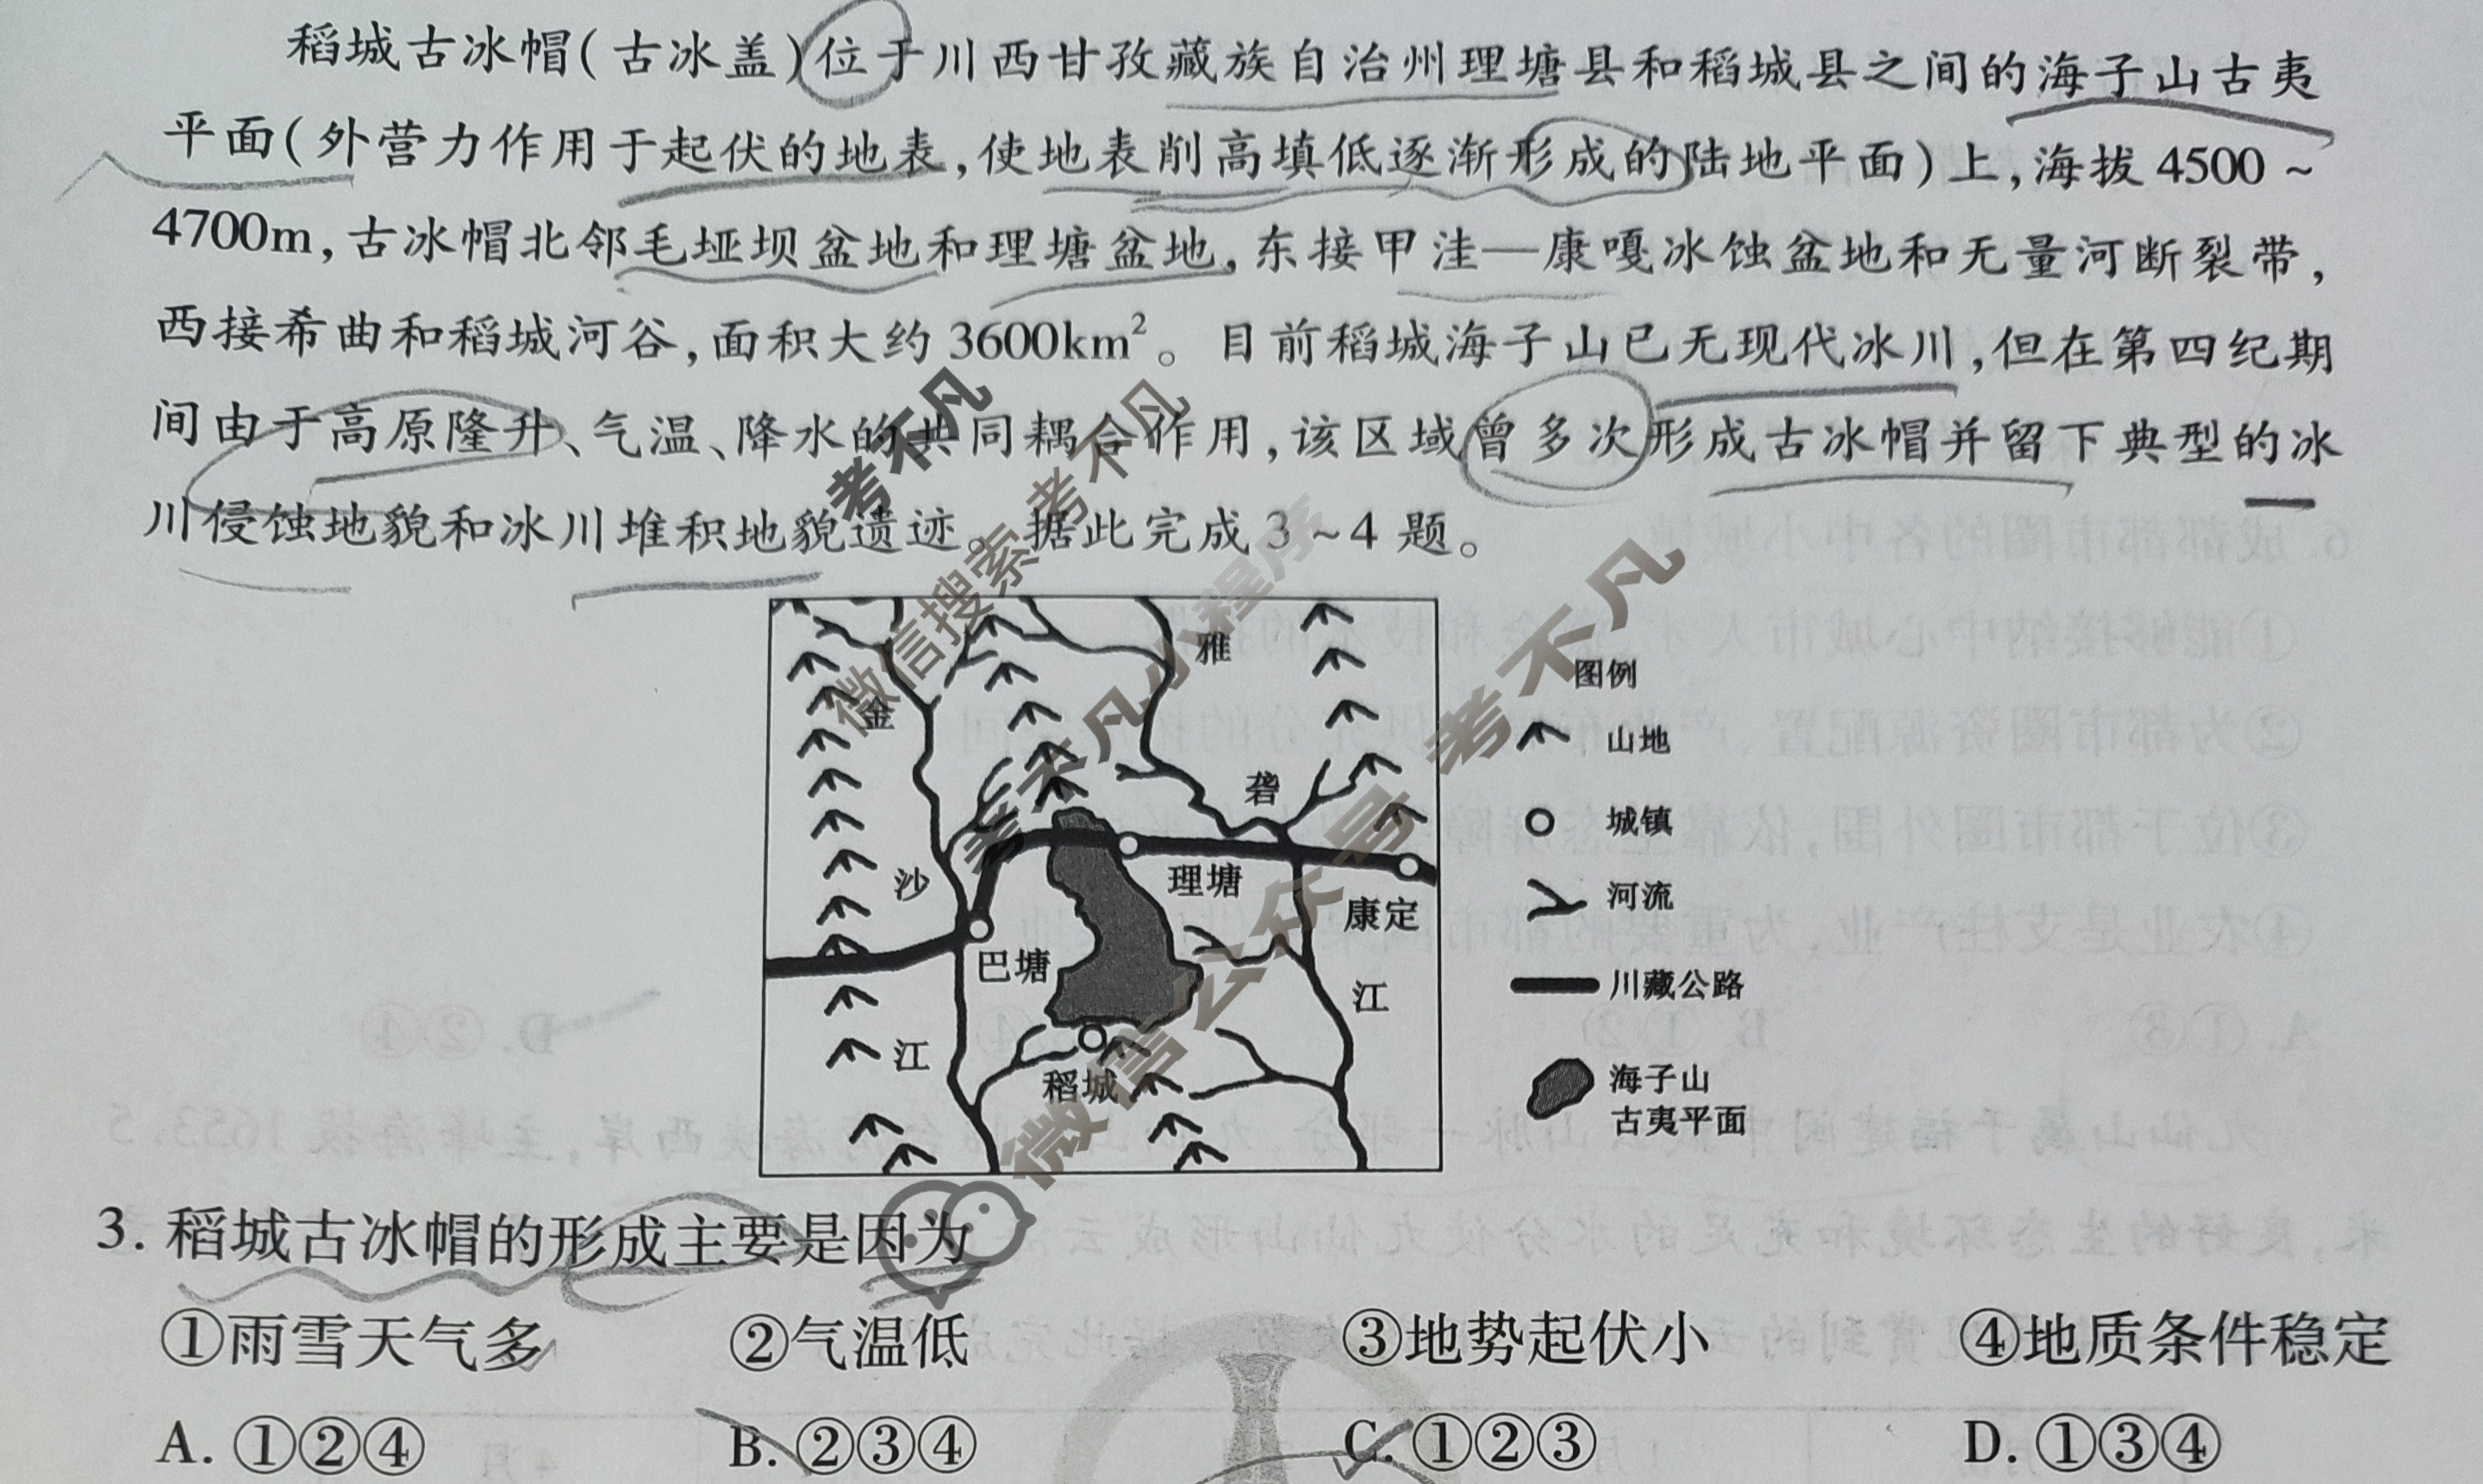 稻城古冰帽(古冰盖)位于川西甘孜藏族自治州理塘县和稻城县之间的海子山古夷
平面(外营力作用于起伏的地表,使地表削高填低逐渐形成的陆地平面)上,海拔4500~
4700m,古冰帽北邻毛垭坝盆地和理塘盆地,东接甲洼—康嘎冰蚀盆地和无量河断裂带,
西接希曲和稻城河谷,面积大约3600km²。目前稻城海子山已无现代冰川,但在第四纪期
间由于高原隆升、气温、降水的共同耦合作用,该区域曾多次形成古冰帽并留下典型的冰
川侵蚀地貌和冰川堆积地貌遗迹。据此完成3~4题。
考不凡
微信搜索考不凡
考不凡小程序
微信公众号 考不凡
雅
金
砻
沙
理塘
康定
巴塘
江
江
稻城
图例
山地
城镇
河流
川藏公路
海子山
古夷平面
3. 稻城古冰帽的形成主要是因为
①雨雪天气多 ②气温低 ③地势起伏小 ④地质条件稳定
A. ①②④ B. ②③④ C. ①②③ D. ①③④